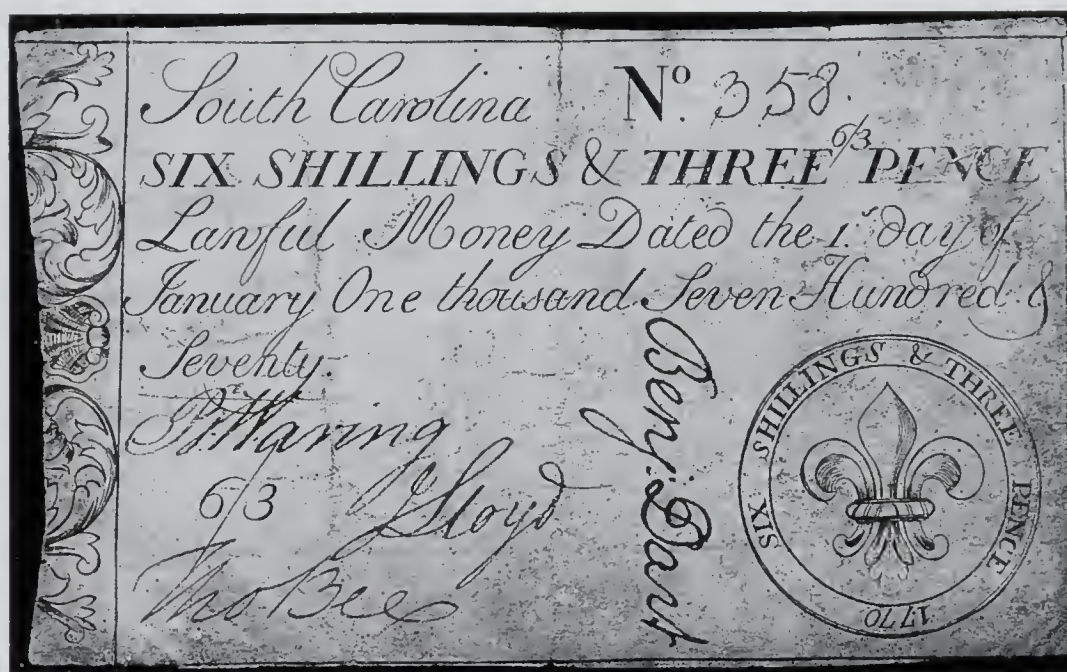 South Carolina Nº. 358.
6/3
SIX SHILLINGS & THREE PENCE
Lawful Money Dated the 1st day of
January One thousand Seven Hundred &
Seventy.
Waring
6/3 Lloyd
Tho Bee
Benj: Dart
SIX SHILLINGS & THREE PENCE
1770